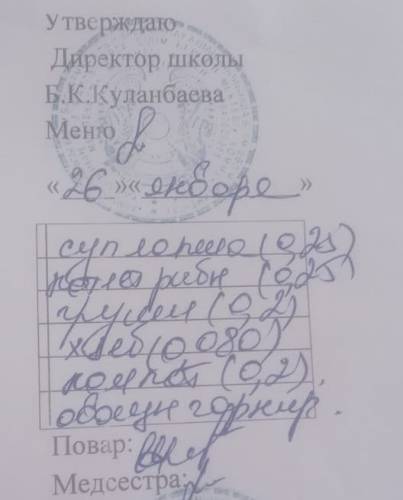 Утверждаю
Директор школы
Б.К.Куланбаева
Меню
«26»«января»
суп лапша (0,25)
рибн (0,25)
груши (0,2)
хлеб (0,080)
компот (0,2)
овощн гарнир.
Повар:
Медсестра: